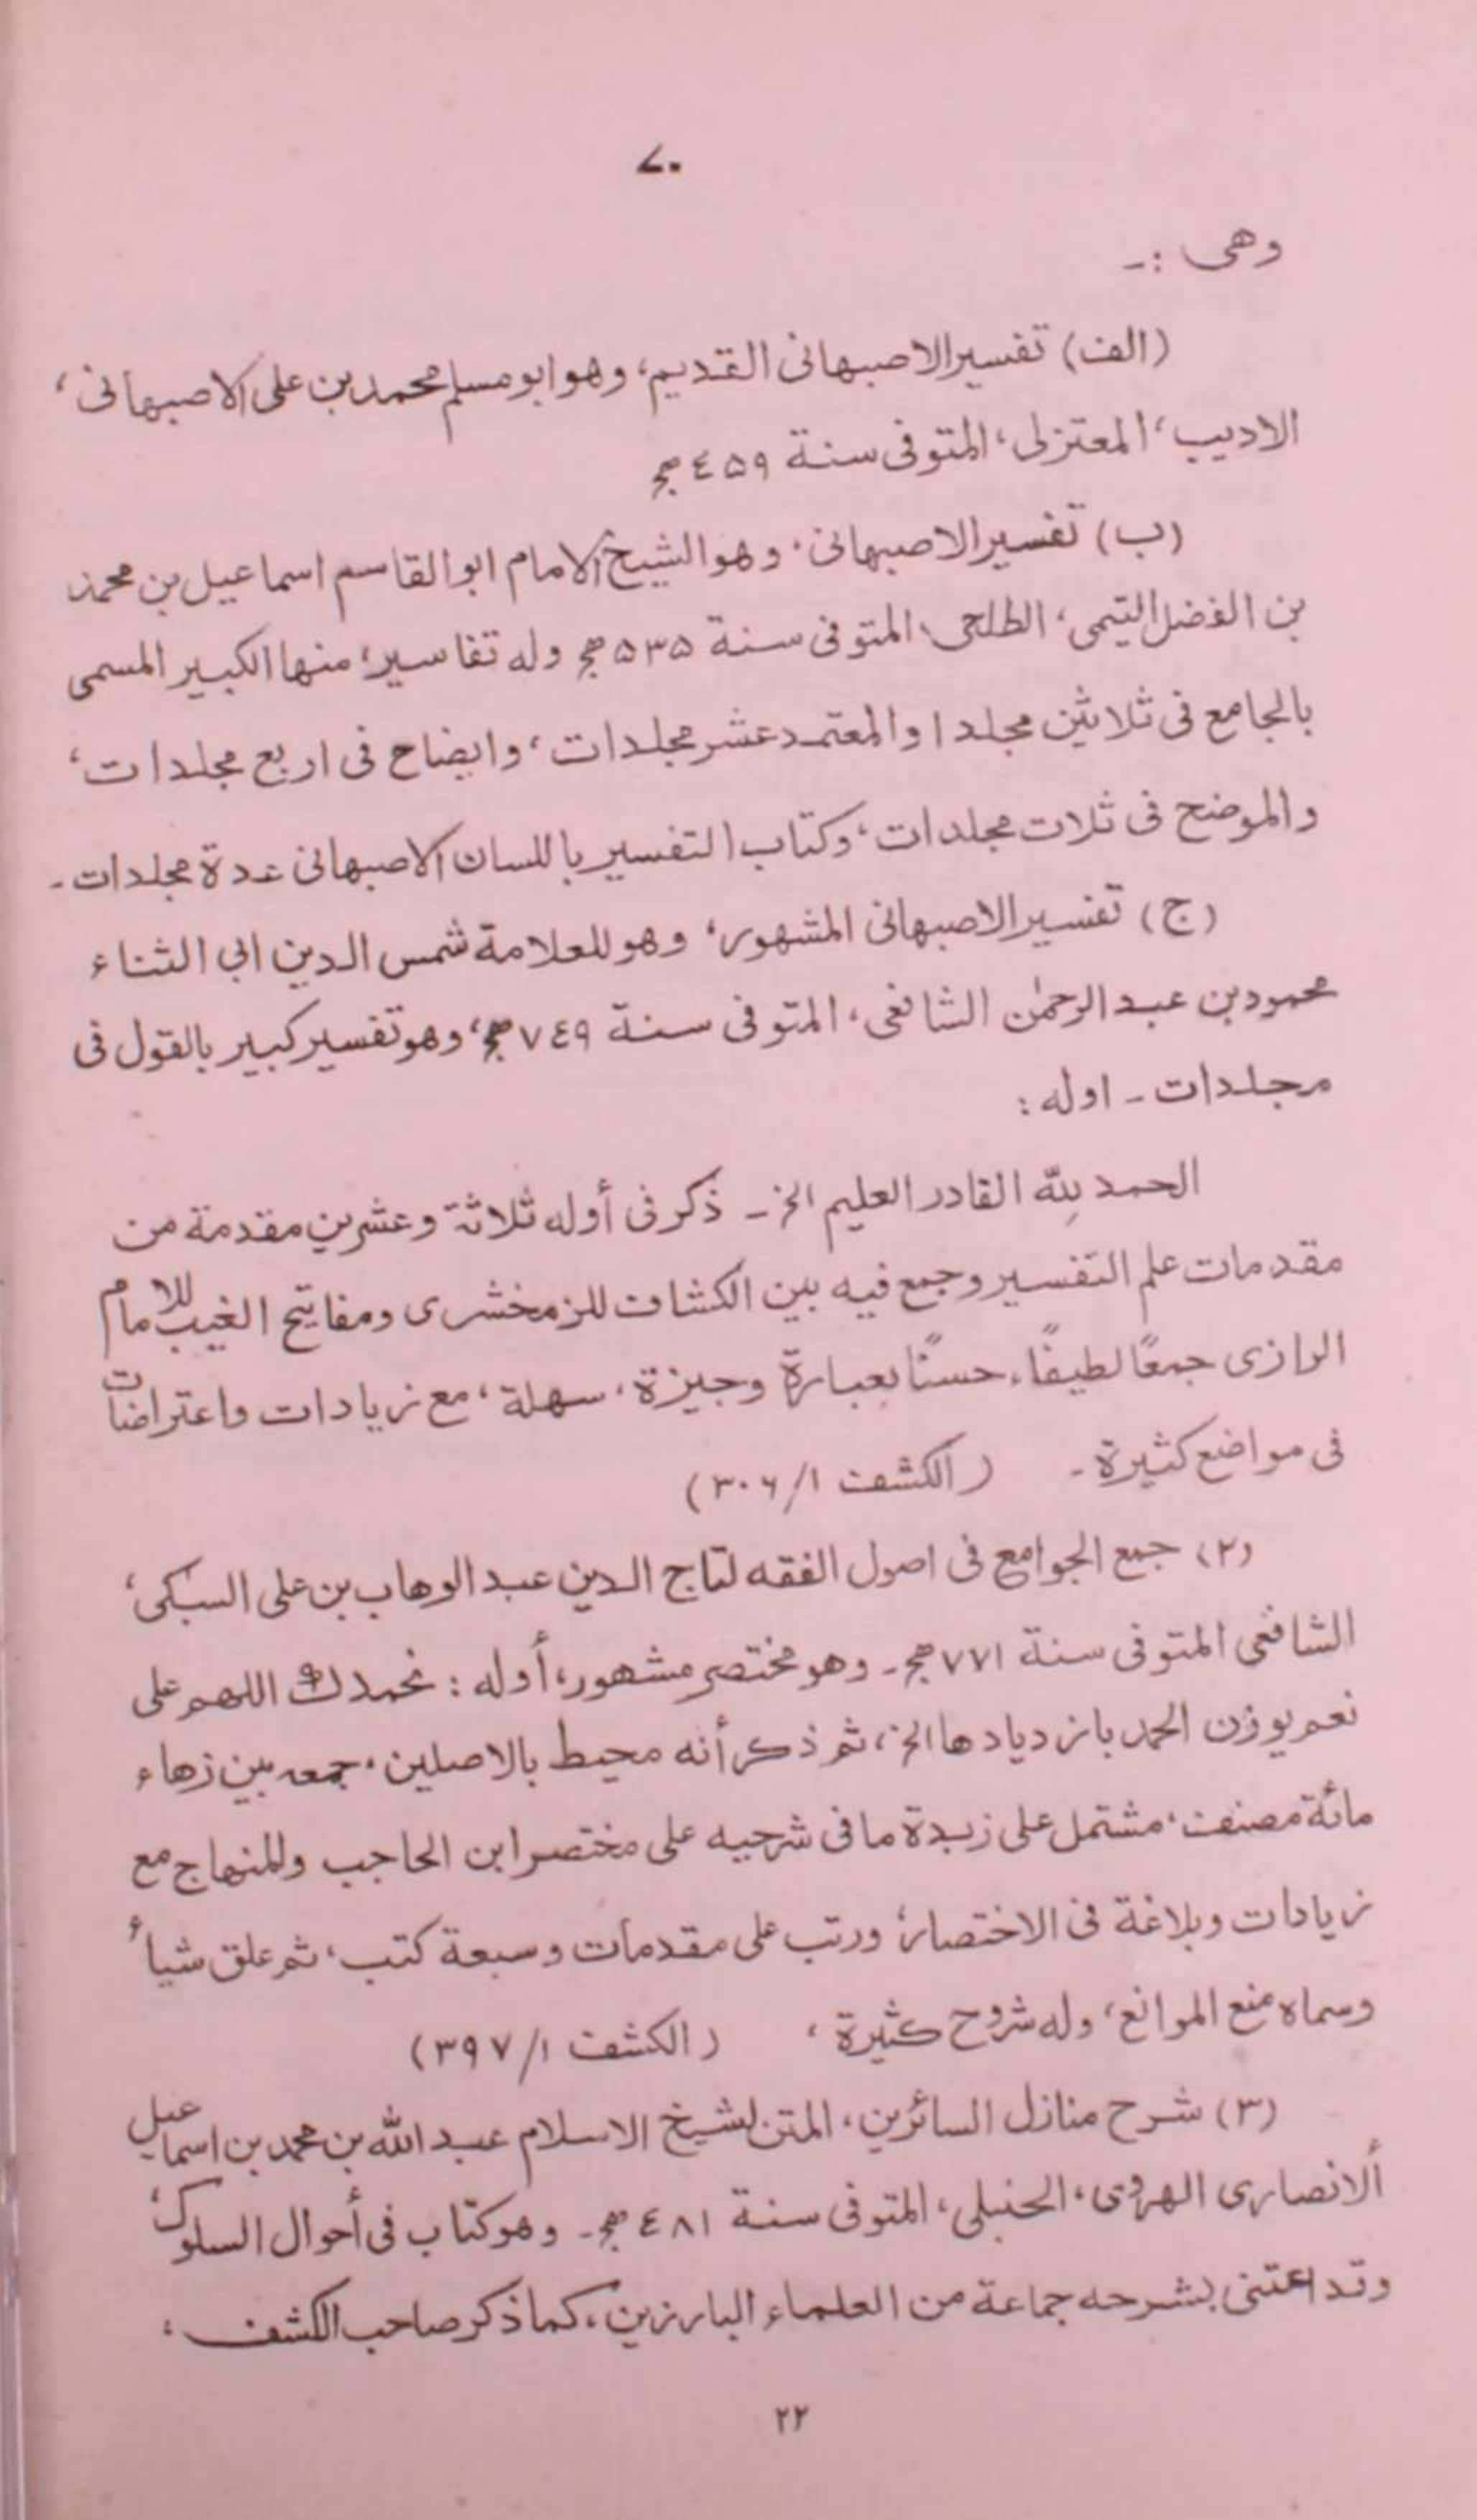 ۷۰
وهى :-
(الف) تفسير الاصبهانى القديم، وهو ابو مسلم محمد بن على الاصبهانى،
الاديب، المعتزلى، المتوفى سنة ٤٥٩ هج
(ب) تفسير الاصبهانى، وهو الشيخ الامام ابو القاسم اسماعيل بن محمد
بن الفضل التيمى، الطلحى، المتوفى سنة ۵۳۵ هج وله تفاسير، منها الكبير المسمى
بالجامع فى ثلاثين مجلدا والمعتمد عشر مجلدات، وايضاح فى اربع مجلدات،
والموضح فى ثلات مجلدات، وكتاب التفسير باللسان الاصبهانى عدة مجلدات -
(ج) تفسير الاصبهانى المشهور، وهو للعلامة شمس الدين ابى الثناء
محمود بن عبد الرحمٰن الشافعى، المتوفى سنة ٧٤٩ هج، وهو تفسير كبير بالقول فى
مجلدات - اوله :
الحمد للّٰه القادر العليم الخ - ذكر فى أوله ثلاثة وعشرين مقدمة من
مقدمات علم التفسير وجمع فيه بين الكشاف للزمخشرى ومفاتيح الغيب للامام
الرازى جمعًا لطيفًا، حسنًا بعبارة وجيزة، سهلة، مع زيادات واعتراضات
فى مواضع كثيرة - (الكشف ۱/۳۰۶)
(۲) جمع الجوامع فى اصول الفقه لتاج الدين عبد الوهاب بن على السبكى،
الشافعى المتوفى سنة ۷۷۱ هج - وهو مختصر مشهور، أوله : نحمدك اللهم على
نعم يوزن الحمد بازديادها الخ، ثم ذكر أنه محيط بالاصلين، جمعه بين زهاء
مائة مصنف، مشتمل على زبدة ما فى شرحيه على مختصر ابن الحاجب والمنهاج مع
زيادات وبلاغة فى الاختصار، ورتب على مقدمات وسبعة كتب، ثم علق شياءُ
وسماه منع الموانع، وله شروح كثيرة، (الكشف ۱/۳۹۷)
(۳) شرح منازل السائرين، المتن لشيخ الاسلام عبد الله بن محمد بن اسماعيل
ألانصارى الهروى، الحنبلى، المتوفى سنة ٤٨١ هج - وهو كتاب فى أحوال السلوك،
وقد اعتنى بشرحه جماعة من العلماء البارزين، كما ذكر صاحب الكشف،
۲۲